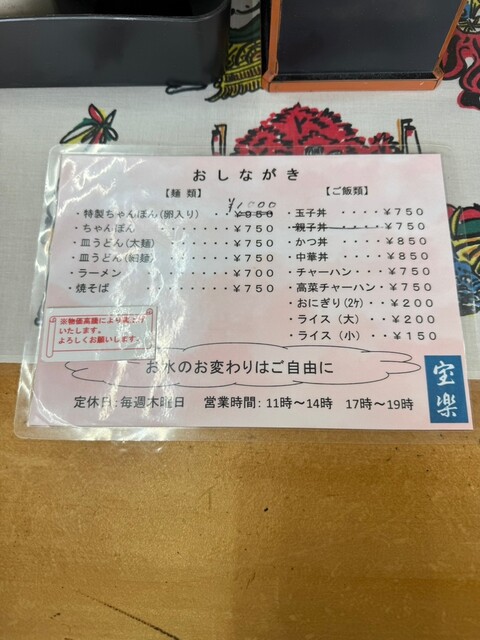 おしながき
【麺 類】
¥1000
・特製ちゃんぽん(卵入り) ・・¥950
・ちゃんぽん ・・・・・・・・¥750
・皿うどん(太麺) ・・・・・・¥750
・皿うどん(細麺) ・・・・・・¥750
・ラーメン ・・・・・・・・・¥700
・焼そば ・・・・・・・・・¥750
【ご飯類】
・玉子丼 ・・・・¥750
・親子丼・・・・・¥750
・かつ丼 ・・・・¥850
・中華丼 ・・・・¥850
・チャーハン・・・・¥750
・高菜チャーハン・・¥750
・おにぎり(2ケ) ・・¥200
・ライス (大) ・・¥200
・ライス (小) ・・¥150
※物価高騰により
いたします。
よろしくお願いします。
お水のお変わりはご自由に
定休日:毎週木曜日 営業時間:11時～14時 17時～19時
宝楽